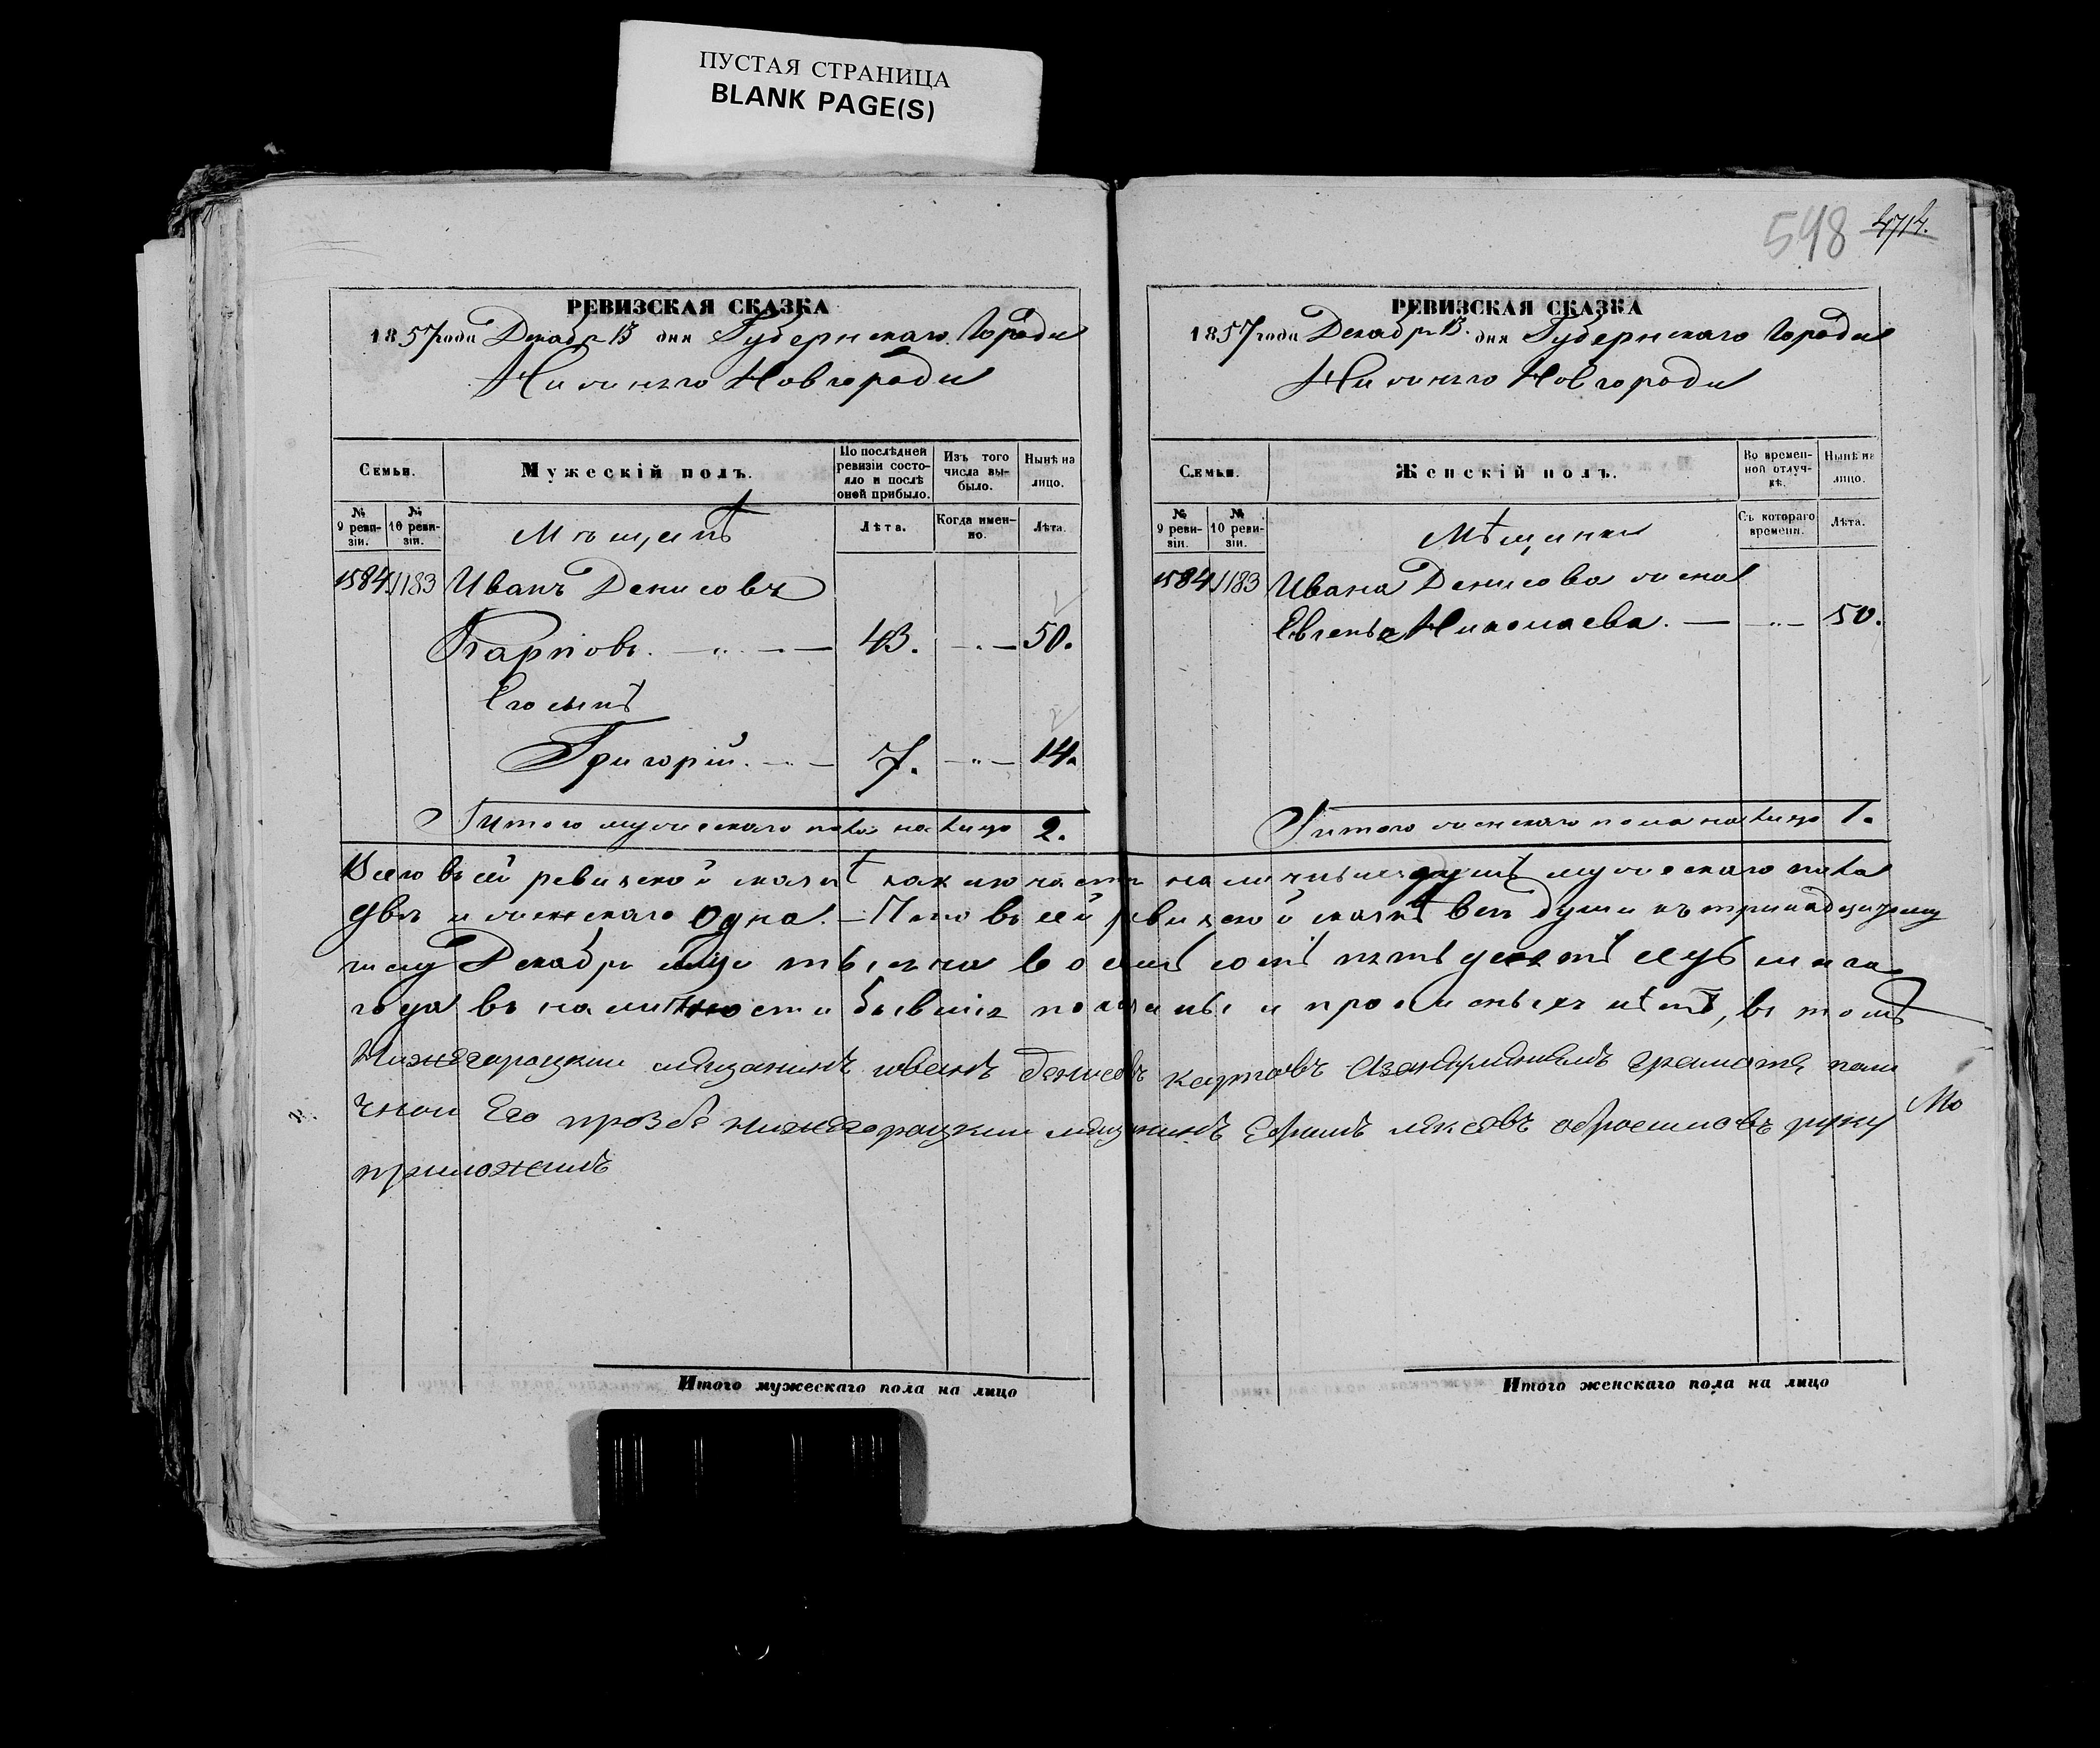 ПУСТАЯ СТРАНИЦА
BLANK PAGE(S)
РЕВИЗСКАЯ СКАЗКА
1857 года Декабря 13 дня Губернскаго Города
Нижняго Новгорода
Семьи.
Мужескій полъ.
По послѣдней ревизіи состояло и послѣ оной прибыло.
Изъ того числа выбыло.
Нынѣ на лицо.
№ 9 ревизіи.
№ 10 ревизіи.
Мѣщанѣ
Лѣта.
Когда именно.
Лѣта.
1584. 1183 Иванъ Денисовъ
Карповъ. 43. 50.
Его сынъ
Григорій. 7. 14.
Итого мужескаго пола на лицо 2.
548 4714.
РЕВИЗСКАЯ СКАЗКА
1857 года Декабря 13. дня Губернскаго Города
Нижняго Новгорода
Семьи.
Женскій полъ.
Во временной отлучкѣ.
Нынѣ на лицо.
№ 9 ревизіи.
№ 10 ревизіи.
Мѣщанки
Съ котораго времени.
Лѣта.
1584. 1183 Ивана Денисова жена
Евгенья Николаева. 50.
Итого женскаго пола на лицо 1.
Всего въ сей ревизской сказкѣ заключается наличныхъ душъ мужескаго пола
двѣ и женскаго одна. – Что въ сей ревизской сказкѣ всѣ души къ тринадцатому
числу Декабря тысяча восемь сотъ пятьдесятъ седьмаго
года въ наличности бывшія показаны и прописныхъ нѣтъ, въ томъ
Нижегороцкии мещанинъ иванъ денисовъ карповъ грамоте
Его прозбе нижегороцкии мещанинъ руку
приложилъ
Итого мужескаго пола на лицо
Итого женскаго пола на лицо